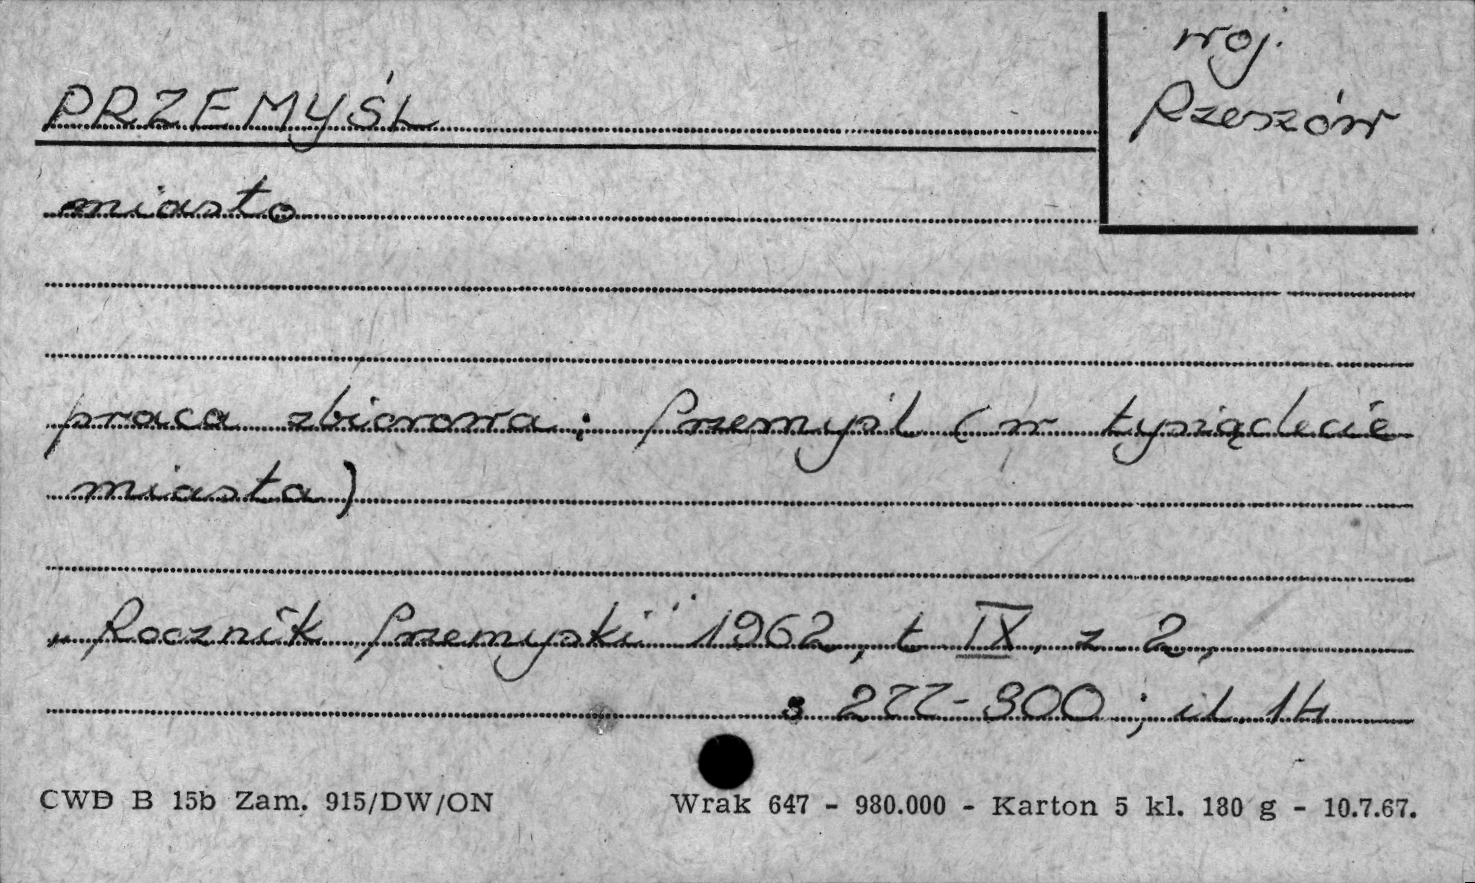 woj.
Rzeszów
PRZEMYŚL
miasto
praca zbiorowa : Przemyśl (w tysiąclecie
miasta)
„Rocznik Przemyski" 1962, t IX, z 2,
s 277-300 ; il. 14
CWD B 15b Zam. 915/DW/ON
Wrak 647 - 980.000 - Karton 5 kl. 180 g - 10.7.67.